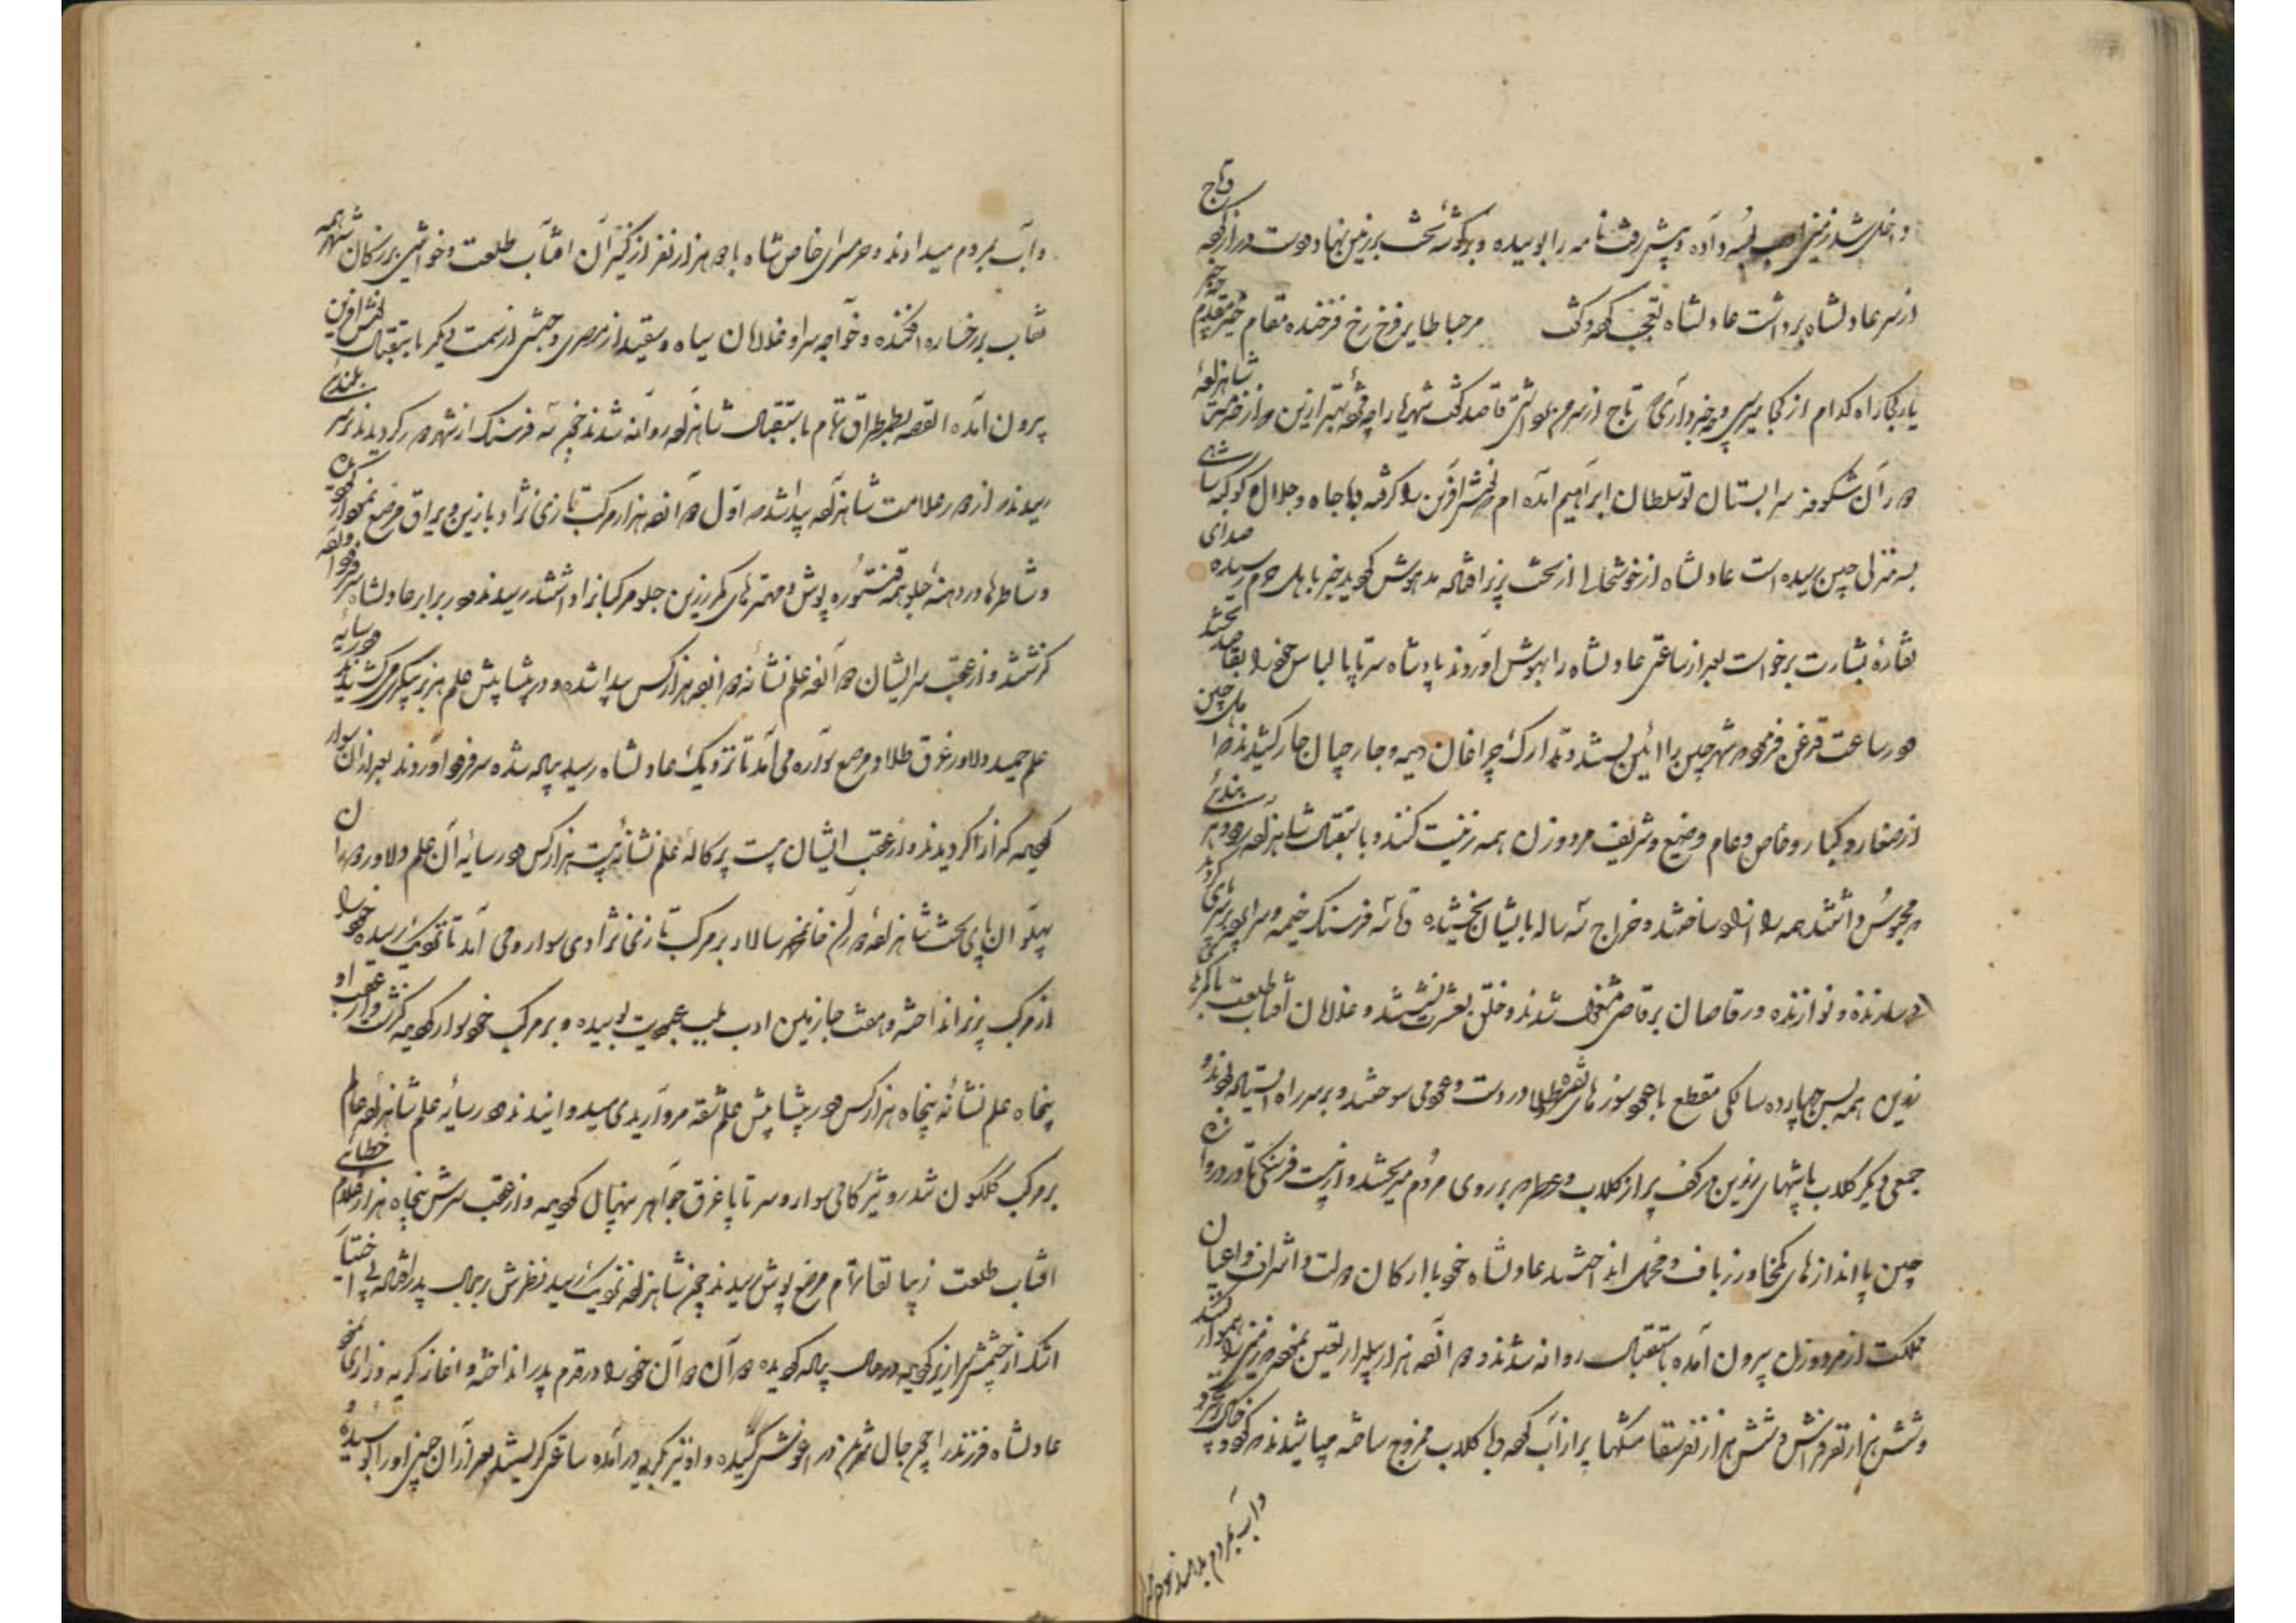 داخل شد زمین ادب بوسه داده و پیش رفت نامه را بوسیده و بگوشهٔ تخت بر زمین نهاد و دست دراز کرده و تاج
از سر عادلشاه برداشت عادلشاه تعجب کرده گفت مرحبا طایر فرخ رخ فرخنده مقام خیر مقدم چه خبر
یار کجا راه کدام از کجا میرسی و چه خبر داری که تاج از سرم برداشتی قاصد گفت شهریارا چه مژده بهتر ازین که از خدمت شاهزاده
که در آن شکوفه سرابستان تو سلطان ابراهیم آمده ام نوش آفرین را گرفته با جاه و جلال و کوکبه شاهی
بسه منزلی چین رسیده است عادلشاه از خوشحالی از تخت بزیر افتاده مدهوش گردید خبر باهل حرم رسیده صدای
نقارهٔ بشارت برخواست بعد از ساعتی عادلشاه را بهوش آوردند پادشاه سر تا پا لباس خود را بقاصد بخشید
در ساعت قدغن فرمود که شهر چین را آئین بستند و تدارک چراغان دیده و جارچیان جار کشیدند که اهل چین
از صغار و کبار و خاص و عام وضیع و شریف مرد و زن همه زینت کنند و باستقبال شاهزاده روند و هر بندئی
که محبوس داشتند همه را آزاد ساختند و خراج سه ساله بایشان بخشیده تا سه فرسنگ خیمه و سراپرده برپای کردند
و سازنده و نوازنده و رقاصان برقاصی مشغول شدند و خلق بعشرت نشستند و غلامان آفتاب طلعت با کمرهای
زرین همه بسن چهارده سالگی مقطع با عودسوزهای نقره و طلا در دست و عود می سوختند و بر سر راه ایستاده بودند و
جمعی دیگر گلاب پاشهای زرین در کف پر از گلاب و عطر که بر روی مردم میریختند و از بیست فرسنگی تا دروازه
چین پا اندازهای کمخا و زرباف و مخمل انداختند عادلشاه خود با ارکان دولت و اشراف و اعیان
مملکت از مرد و زن بیرون آمده باستقبال روانه شدند و دوازده هزار بیلدار تعین نمود که زمین را هموار کنند
و شش هزار نفر فراش و شش هزار نفر سقا مشکها پر از آب کرده با گلاب ممزوج ساخته میپاشیدند که گرد و خاک
و آب بمردم میدادند و حرم
و آب بمردم میدادند و حرمسرای خاص شاه با دو هزار نفر از کنیزان آفتاب طلعت و خواتین بزرگان شهر همه
نقاب بر رخساره افکنده و خواجه سرا و غلامان سیاه و سفید از مصری و حبشی از سمت دیگر باستقبال نوش آفرین
بیرون آمده القصه بطمطراق تمام باستقبال شاهزاده روانه شدند چون سه فرسنگ از شهر دور گردیدند بر سر بلندئی
رسیدند از دور علامت شاهزاده پیدا شد که اول دوازده هزار مرکب تازی نژاد با زین و یراق مرصع نمودار گردید
و شاطرها در دهنهٔ جلو همه قنتوره پوش و مهترهای کمر زرین جلو مرکبان را داشتند رسیدند در برابر عادلشاه سر فرود آورده
گذشتند و از عقب سر ایشان دوازده علم نشانه دوازده هزار کس پیدا شده و در پیشاپیش علم هژبر پیکری میکشیدند در سایهٔ
علم جمشید دلاور غرق طلا و مرصع سواره می آمد تا نزدیک عادلشاه رسید پیاده شده سر فرود آوردند بعد از آن سوار
گردیده گذرا گردیدند و از عقب ایشان بیست پرکاله علم نشانهٔ بیست هزار کس در سایهٔ آن علم دلاور دوران
پهلوان پای تخت شاهزاده سپهسالار بر مرکب تازی نژادی سوار و می آمد تا نزدیک رسیده خود را
از مرکب بزیر انداخته و هفت جا زمین ادب بلب عبودیت بوسیده و بر مرکب خود سوار گردیده گذشت و از عقب او
پنجاه علم نشانهٔ پنجاه هزار کس در پیشاپیش علم شقه مرواریدی میدوانیدند در سایهٔ علم شاهزاده عالم
بر مرکب گلگون تندرو تیزگامی سوار و سر تا پا غرق جواهر پنهان گردیده و از عقب سرش پنجاه هزار غلام خطائی
آفتاب طلعت زیبا لقا تمام مرصع پوش رسیدند چون شاهزاده نزدیک رسید نظرش بر جمال پدر افتاده بی اختیار
اشک از چشمش سرازیر گردیده در حال پیاده گردیده دوان دوان خود را در قدم پدر انداخته و آغاز گریه و زاری نمود
عادلشاه فرزند را چون جان شیرین در آغوش کشیده و او نیز بگریه درآمده ساعتی گریستند بعد از آن جبین او را بوسیده و